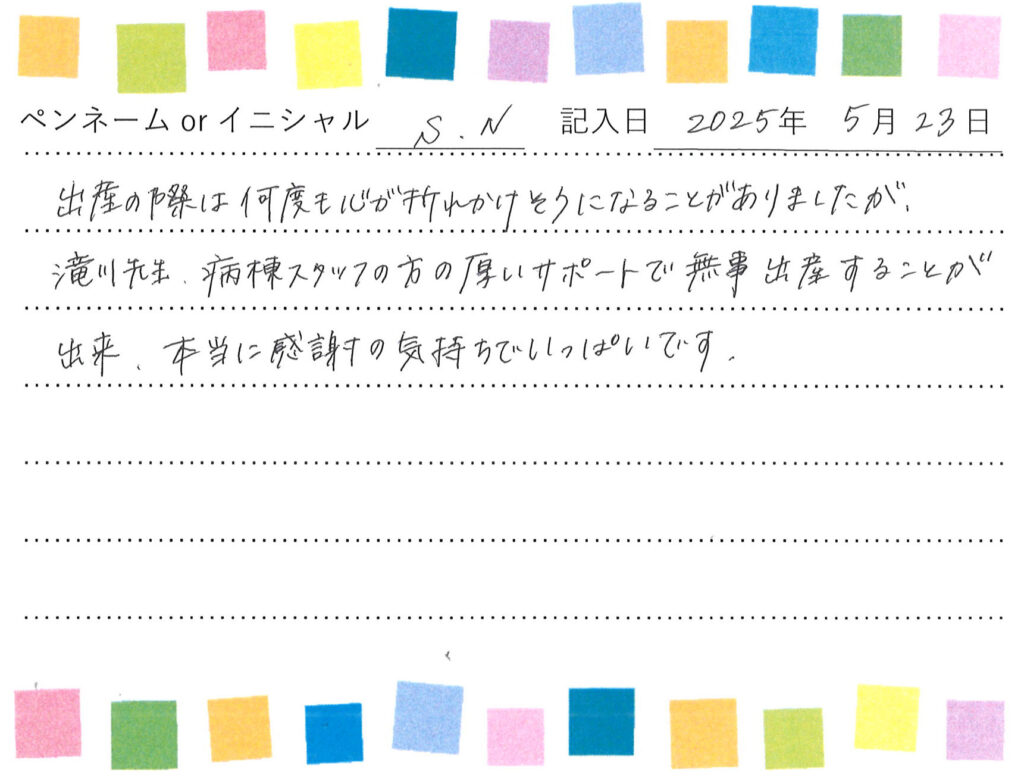 ペンネーム or イニシャル S.N 記入日 2025年 5月23日
出産の際は何度も心が折れかけそうになることがありましたが、
滝川先生、病棟スタッフの方の厚いサポートで無事出産することが
出来、本当に感謝の気持ちでいっぱいです。